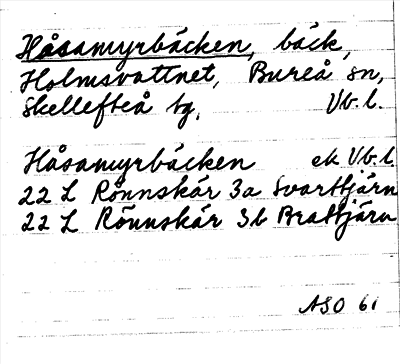 Håsamyrbäcken, bäck,
Holmsvattnet, Bureå sn,
Skellefteå tg, Vb. l.
Håsamyrbäcken ek Vb. l.
22 L Rönnskär 3a Svarttjärn
22 L Rönnskär 3b Brattjärn
ASO 61